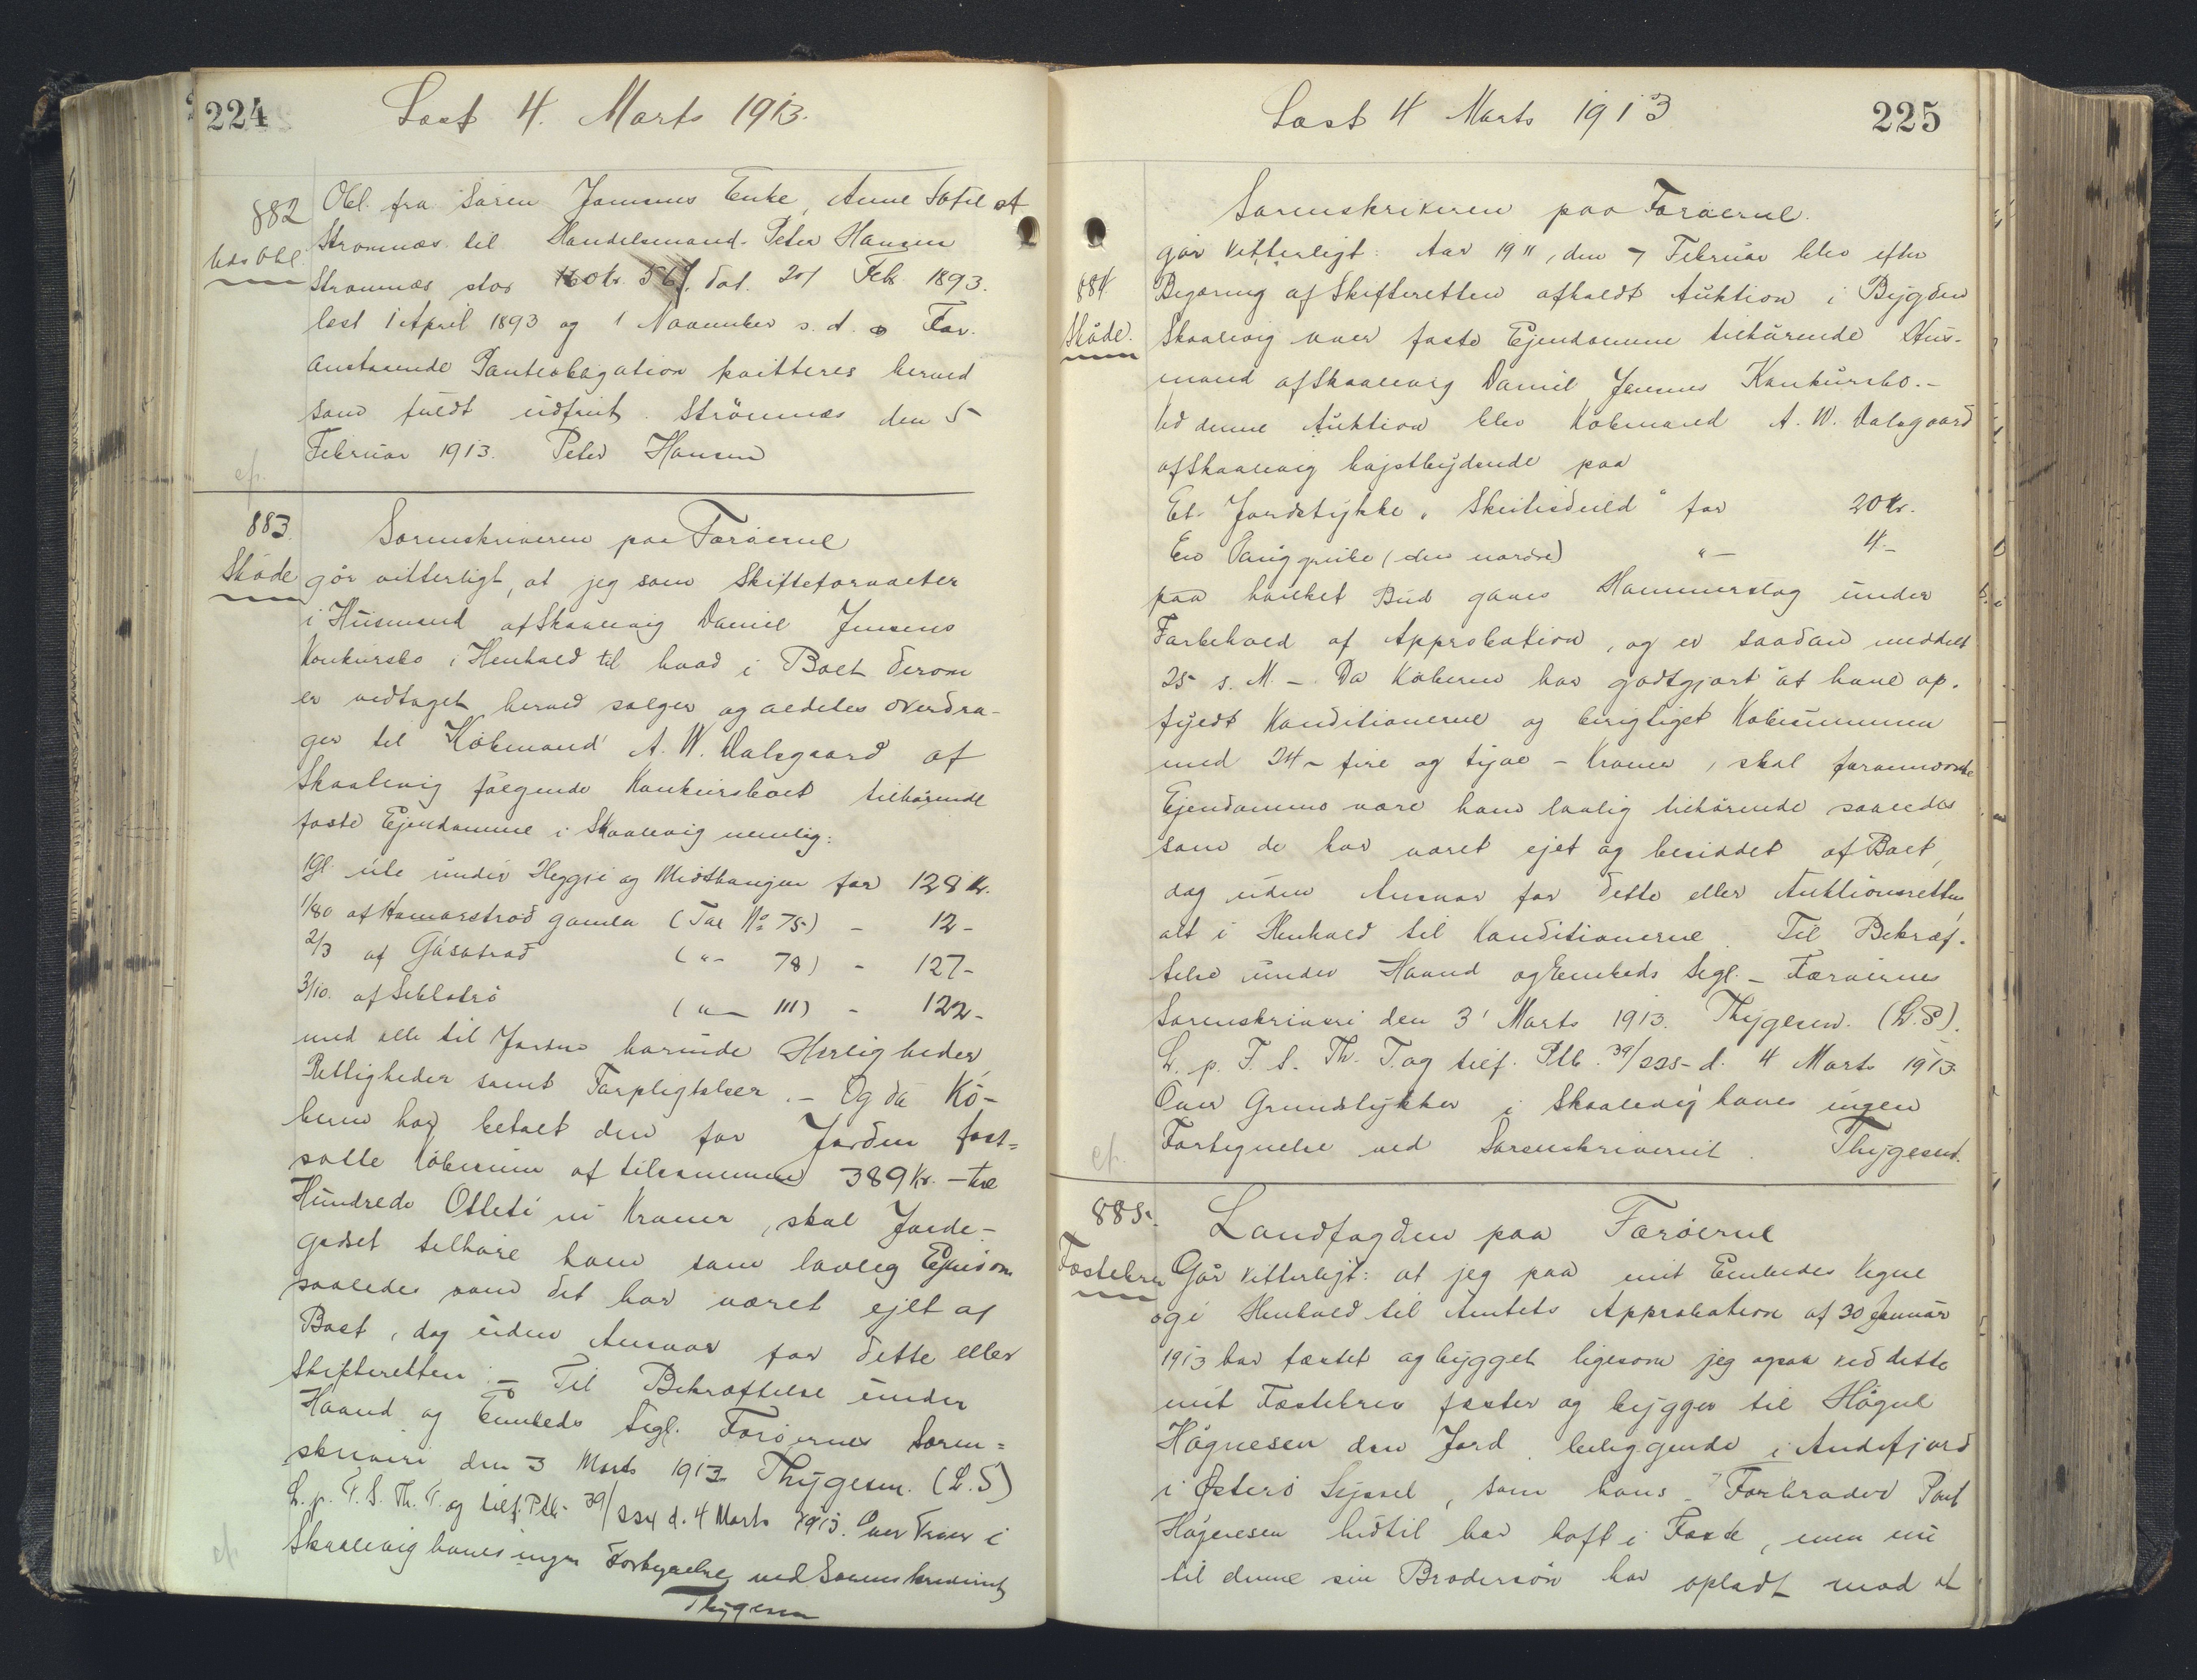 224
Læst 4. Marts 1913.
882
Uds Obl.
Obl. fra Sören Joensens Enke, Anne Sofie af
Strømnæs til Handelsmand Peter Hansen
Strømnæs stor 160 kr. 56 f. dat. 20/1 Feb. 1893.
læst 1 April 1893 og 1 November s. d. For.
anstaaende Panteobligation kvitteres herved
som fuldt udfriet. Strömnæs den 5
Februar 1913. Peter Hansen
cf.
883.
Sorenskriveren paa Færöerne
Sköde
gör vitterligt, at jeg som Skifteforvalter
i Husmand af Skaalevig Daniel Jensens
Konkursbo i Henhold til hvad i Boet derom
er vedtaget herved sælger og aldeles overdra-
ger til Købmand A. W. Dalsgaard af
Skaalevig følgende Konkursboet tilhørende
faste Ejendomme i Skaalevig nemlig:
1 Gl. ule under Heggje og Midthaugen for 128 Kr.
1/80 af Hamarstrød gamla (Tal No 75) - 12 -
2/3 af Gásatrød ( " - 78) - 127 -
3/10 af Seklatrö ( " - 111) - 122 -
med alle til Jorden hørende Herligheder,
Rettigheder samt Forpligtelser. - Og da Kö-
beren har betalt den for Jorden fast=
satte Købesum af tilsammen 389 Kr. - tre
Hundrede Otteti ni Kroner, skal Jorde-
godset tilhøre ham som lovlig Ejendom
saaledes som det har været ejet af
Boet, dog uden Ansvar for dette eller
Skifteretten. - Til Bekræftelse under
Haand og Embeds Segl. Færöernes Soren=
skriveri den 3 Marts 1913. Thygesen. (L.S)
L. p. F. S. Th. T. og tilf. Ptb. 39/224 d. 4 Marts 1913. Over Trøer i
Skaalevig haves ingen Fortegnelse ved Sorenskriveriet
Thygesen
cf.
Læst 4 Marts 1913
225
Sorenskriveren paa Færöerne.
884
Sköde.
gör vitterligt: Aar 1911, den 7 Februar blev efter
Begæring af Skifteretten afholdt Auktion i Bygden
Skaalevig over faste Ejendomme tilhørende Hus-
mand af Skaalevig Daniel Jensens Konkursbo. -
Ved denne Auktion blev Købmand A. W. Dalsgaard
af Skaalevig højstbydende paa
Et Jordstykke " " for 20 Kr.
En Tanggrube (den nordre) " - 4 -
paa hvilket Bud gaves Hammerslag under
Forbehold af Approbation, og er saadan meddelt
25 s. M. - Da Køberen har godtgjort at have op-
fyldt Konditionerne og berigtiget Købesummen
med 24 - fire og tyve - Kroner, skal forannævnte
Ejendomme være ham lovlig tilhørende saaledes
som de har været ejet og besiddet af Boet,
dog uden Ansvar for dette eller Auktionsretten
alt i Henhold til Konditionerne. Til Bekræf-
telse under Haand og Embeds Segl. - Færøernes
Sorenskriveri den 3' Marts 1913. Thygesen. (L.S).
L. p. F. S. Th. T. og tilf. Ptb. 39/225 d. 4 Marts 1913.
Over Grundstykker i Skaalevig haves ingen
Fortegnelse ved Sorenskriveriet. Thygesen.
cf.
885.
Landfogden paa Færöerne
Fæstebrev
Gör vitterligt: at jeg paa mit Embedes Vegne
og i Henhold til Amtets Approbation af 30 Januar
1913 har fæstet og bygget ligesom jeg ogsaa ved dette
mit Fæstebrev fæster og bygger til Högne
Högnesen den Jord beliggende i Andefjord
i Østerø Syssel, som hans Farbroder Poul
Högnesen hidtil har haft i Fæste, men nu
til denne sin Brodersön har opladt mod at